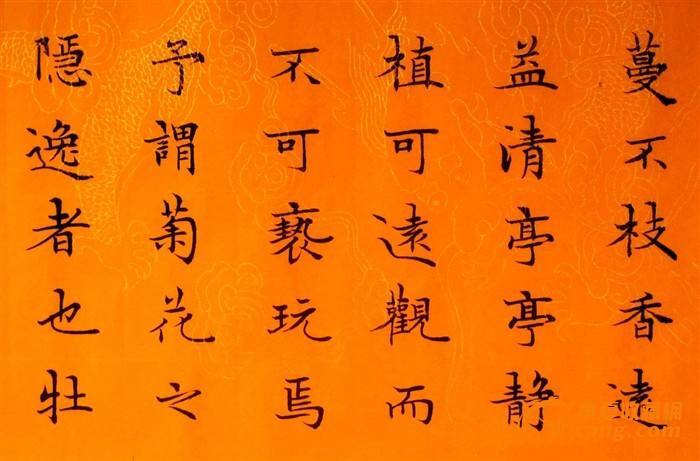 蔓不枝香遠
益清亭亭静
植可遠觀而
不可褻玩焉
予謂菊花之
隱逸者也牡